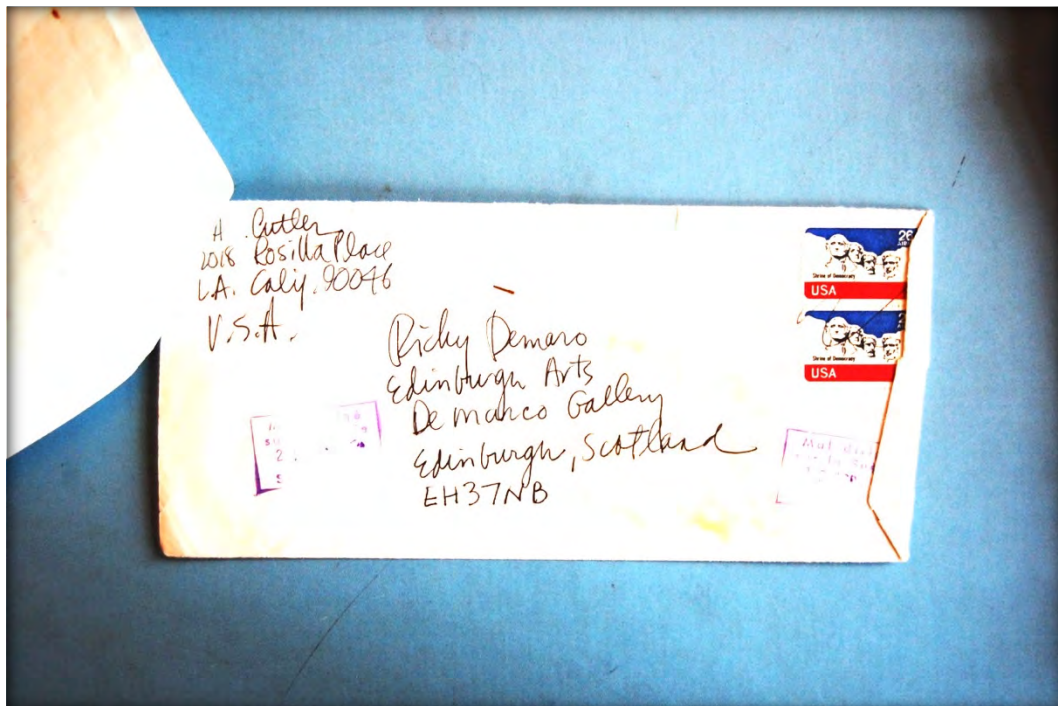 H. Cutler
2018 Rosilla Place
L.A. Calif. 90046
U.S.A.
Ricky Demaro
Edinburgh Arts
Demarco Gallery
Edinburgh, Scotland
EH37NB
26
Shrine of Democracy
USA
Shrine of Democracy
USA